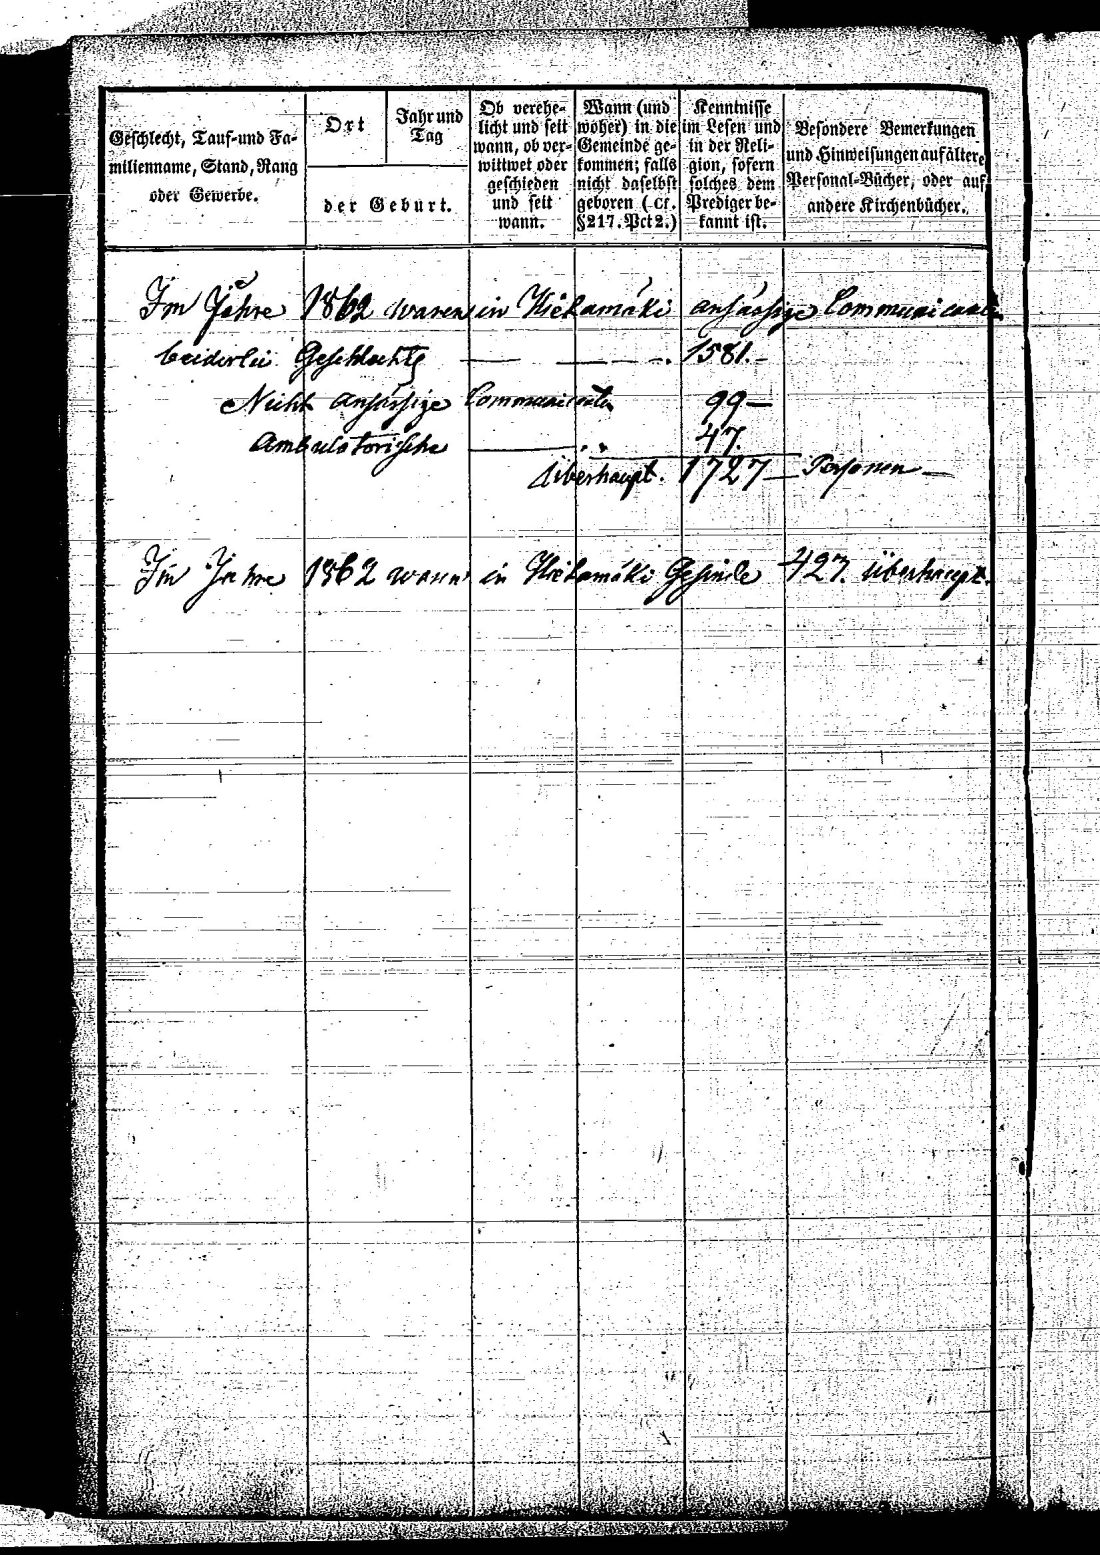 Geschlecht, Tauf- und Fa-
milienname, Stand, Rang
oder Gewerbe.
Ort
Jahr und
Tag
der Geburt.
Ob verehe-
licht und seit
wann, ob ver-
wittwet oder
geschieden
und seit
wann.
Wann (und
woher) in die
Gemeinde ge-
kommen; falls
nicht daselbst
geboren (Cf.
§217. Pct 2.)
Kenntnisse
im Lesen und
in der Reli-
gion, sofern
solches dem
Prediger be-
kannt ist.
Besondere Bemerkungen
und Hinweisungen auf ältere
Personal-Bücher, oder auf
andere Kirchenbücher.
Im Jahre 1862 waren in Hietamäki ansässige Communicanten
beiderlei Geschlechts — — —. 1581.–
Nicht ansässige Communicanten 99—
Ambulatorische — 47.
Überhaupt. 1727— Personen —
Im Jahre 1862 waren in Hietamäki Gesinde 427. überhaupt.